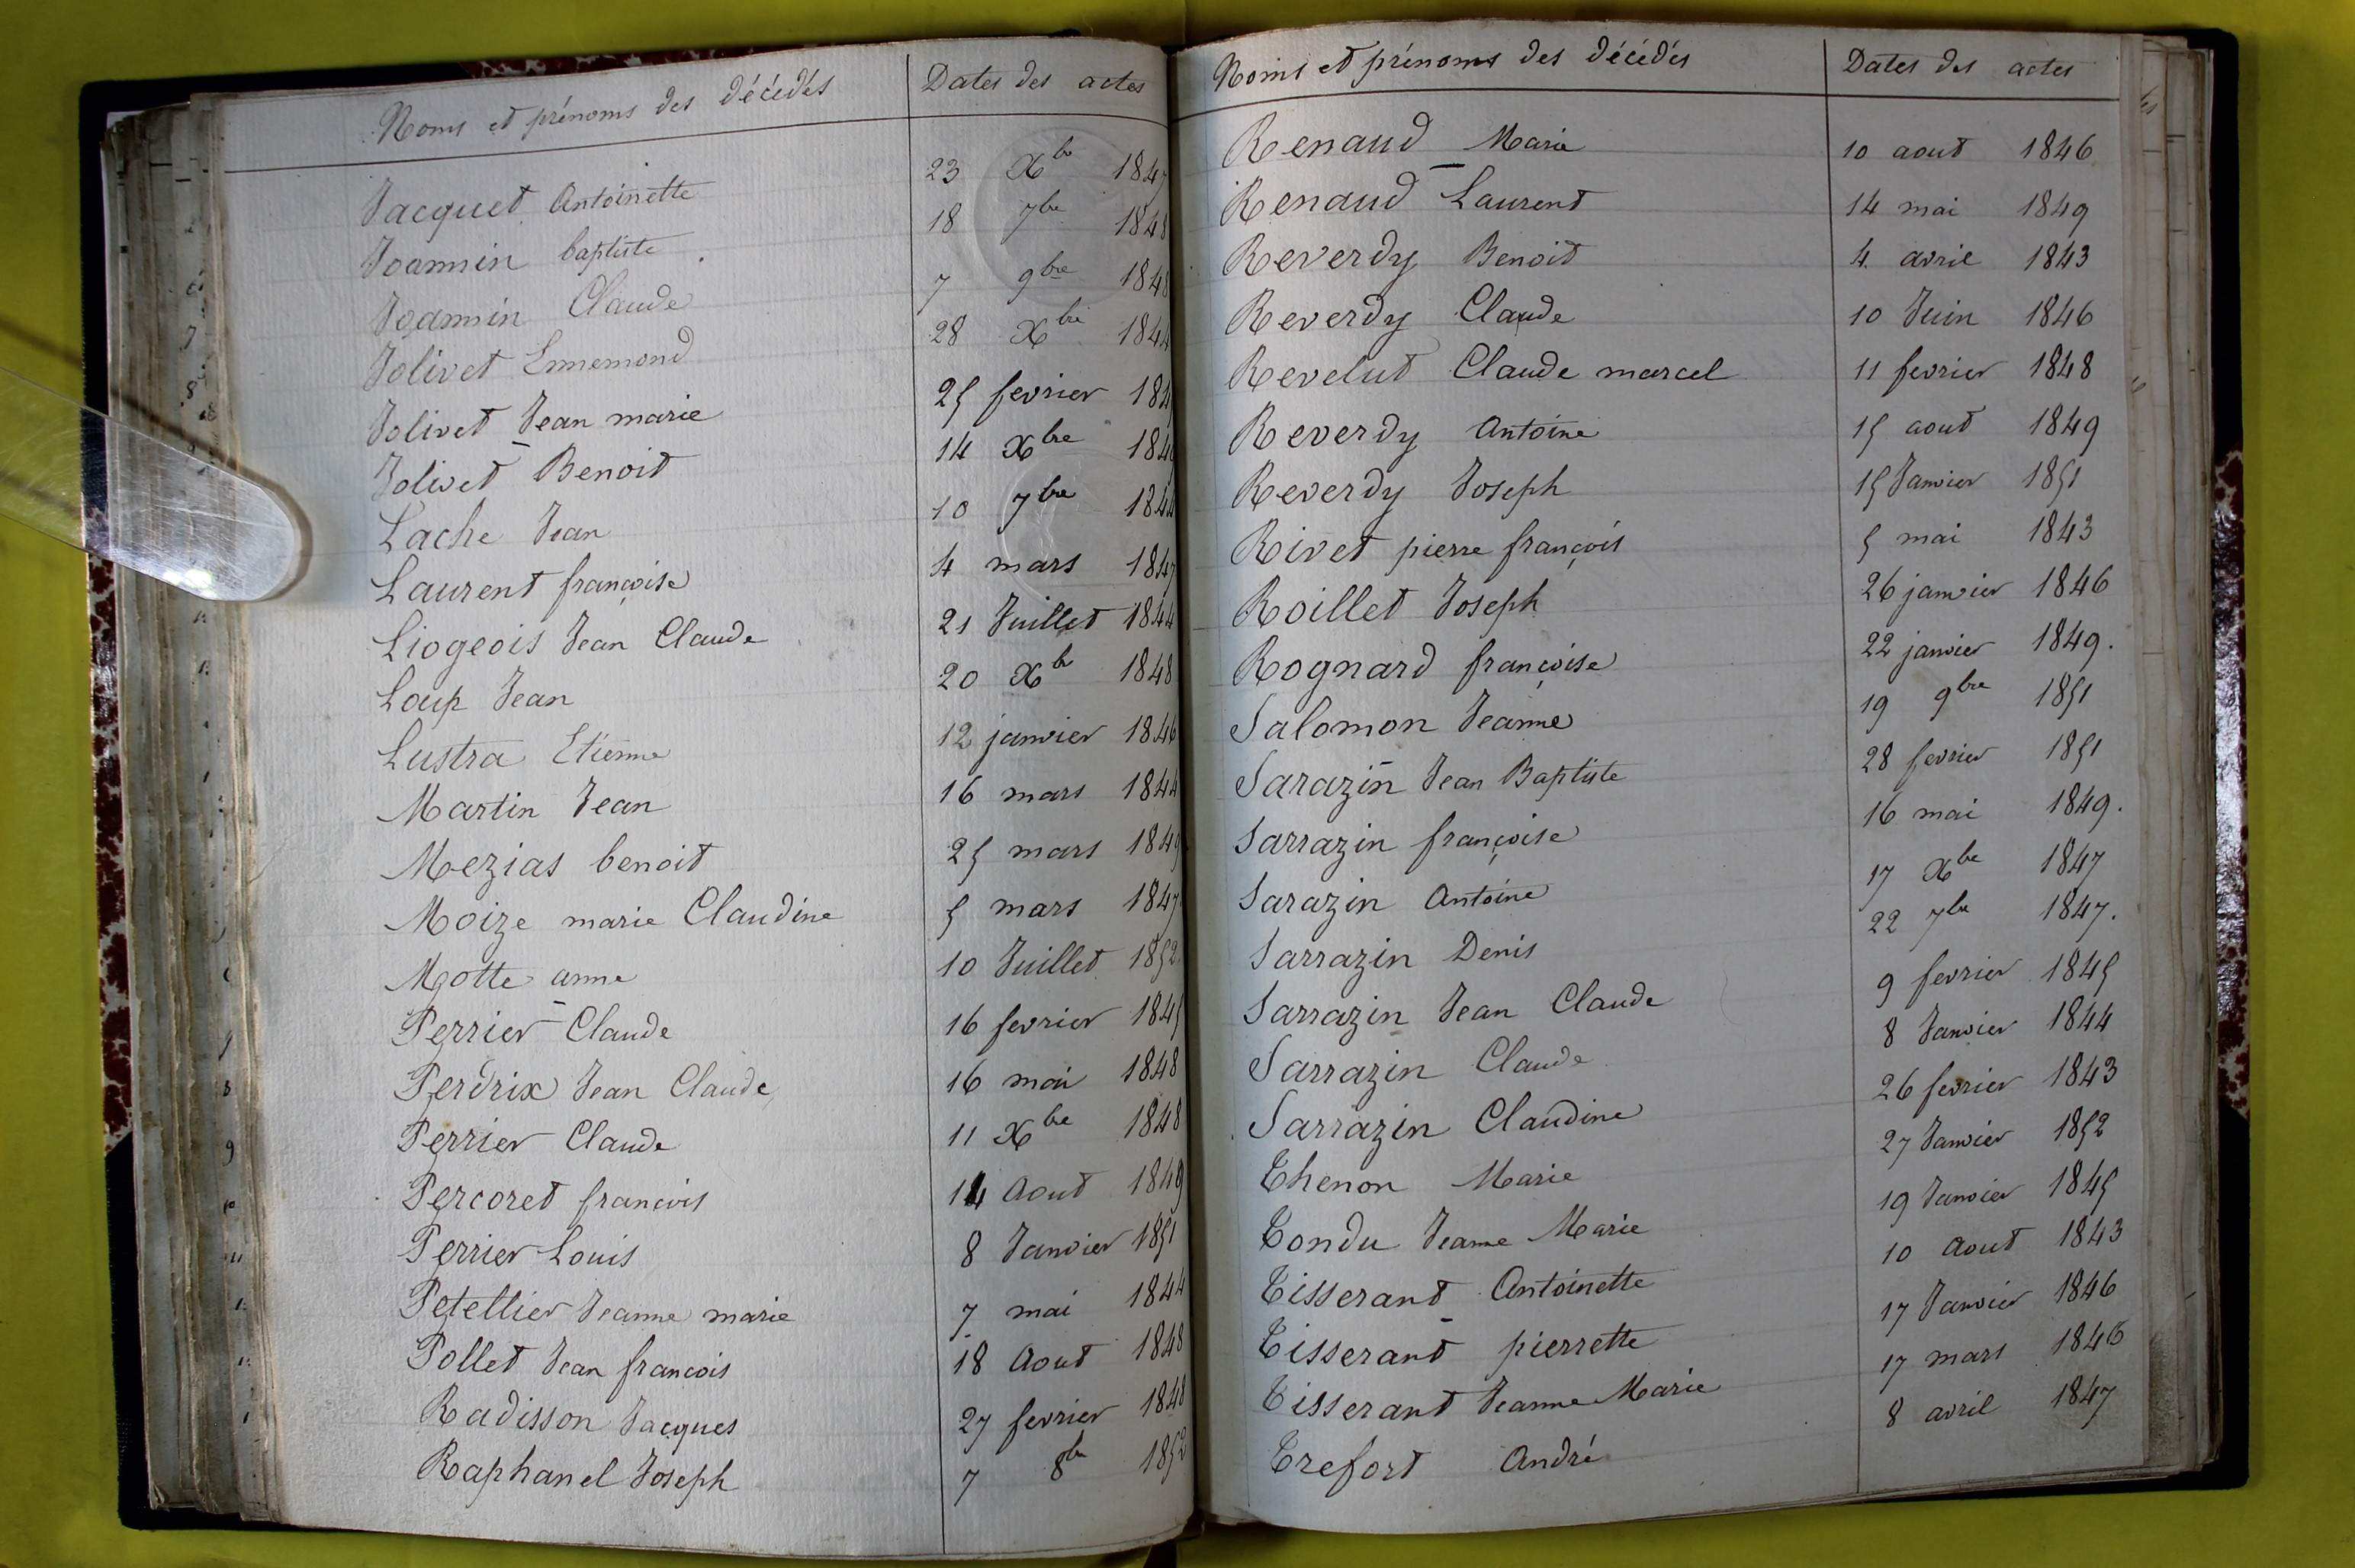 Noms et prénoms des décédés Dates des actes
Jacquet Antoinette 23 Xbre 1847
Joannin baptiste 18 7bre 1848
Joannin Claude 7 9bre 1848
Jolivet Ennemond 28 Xbre 1844
Jolivet Jean marie 25 fevrier 184
Jolivet Benoit 14 Xbre 184
Lache Jean 10 7bre 1844
Laurent françoise 4 mars 1847
Liogeois Jean Claude 21 Juillet 1844
Loup Jean 20 Xbre 1848
Lustra Etienne 12 janvier 1846
Martin Jean 16 mars 1844
Mezias benoit 25 mars 1849
Moize marie Claudine 5 mars 1847
Motte anne 10 Juillet 1852
Perrier Claude 16 fevrier 1845
Perdrix Jean Claude 16 mai 1848
Perrier Claude 11 Xbre 1848
Percoret francois 14 Aout 1849
Perrier Louis 8 Janvier 1851
Petellier Jeanne marie 7 mai 1844
Pollet Jean francois 18 Aout 1848
Radisson Jacques 27 fevrier 1848
Raphanel Joseph 7 8bre 1852
Noms et prénoms des décédés Dates des actes
Renaud Marie 10 aout 1846
Renaud Laurent 14 mai 1849
Reverdy Benoit 4 avril 1843
Reverdy Claude 10 Juin 1846
Revelut Claude marcel 11 fevrier 1848
Reverdy Antoine 15 aout 1849
Reverdy Joseph 15 Janvier 1851
Rivet pierre françois 5 mai 1843
Roillet Joseph 26 janvier 1846
Rognard françoise 22 janvier 1849.
Salomon Jeanne 19 9bre 1851
Sarazin Jean Baptiste 28 fevrier 1851
Sarrazin françoise 16 mai 1849.
Sarazin Antoine 17 Xbre 1847
Sarrazin Denis 22 7bre 1847.
Sarrazin Jean Claude 9 fevrier 1845
Sarrazin Claude 8 Janvier 1844
Sarrazin Claudine 26 fevrier 1843
Thenon Marie 27 Janvier 1852
Tondu Jeanne Marie 19 Janvier 1845
Tisserant Antoinette 10 Aout 1843
Tisserant pierrette 17 Janvier 1846
Tisserant Jeanne Marie 17 mars 1846
Trefort André 8 avril 1847